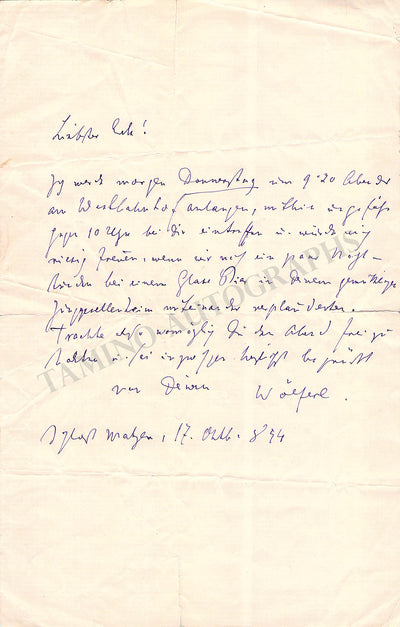 Liebster Eck!
Ich werde morgen Donnerstag um 9·20 Abends
am Westbahnhof anlangen, mithin ungefähr
gegen 10 Uhr bei dir eintreffen u. würde mich
riesig freuen, wenn wir noch ein paar Nacht-
stunden bei einem Glase Bier in Deinem gemütlichen
Junggesellenheim miteinander verplauderten.
Trachte also womöglich dir den Abend frei zu
halten u. sei inzwischen herzlichst begrüßt
von Deinem Wölferl.
Schloß Matzen, 17. Oktb. 894
TAMINO AUTOGRAPHS